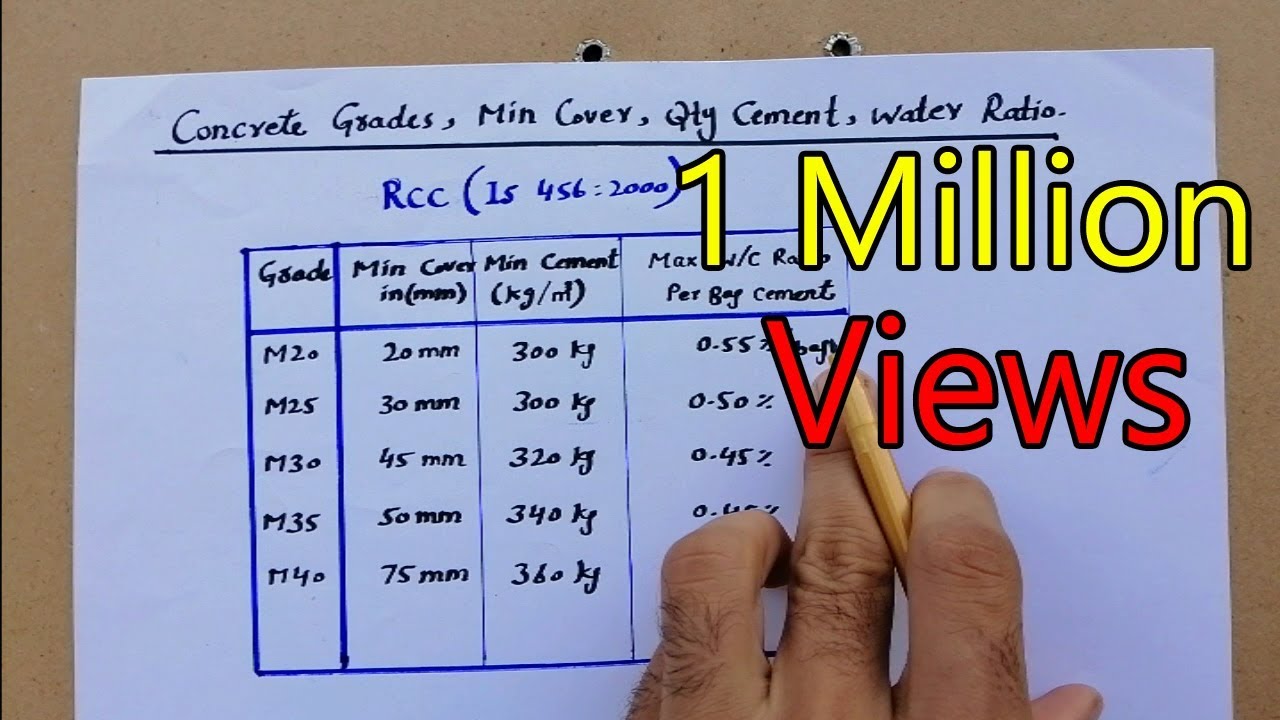 Concrete Grades, Min Cover, Qty Cement, Water Ratio.
RCC (Is 456:2000)
1 Million
Views
Grade Min Cover in(mm) Min Cement (kg/m³) Max W/C Ratio Per Bag Cement
M20 20mm 300 kg 0.55%
M25 30 mm 300 kg 0.50%
M30 45 mm 320 kg 0.45%
M35 50 mm 340 kg
M40 75 mm 360 kg